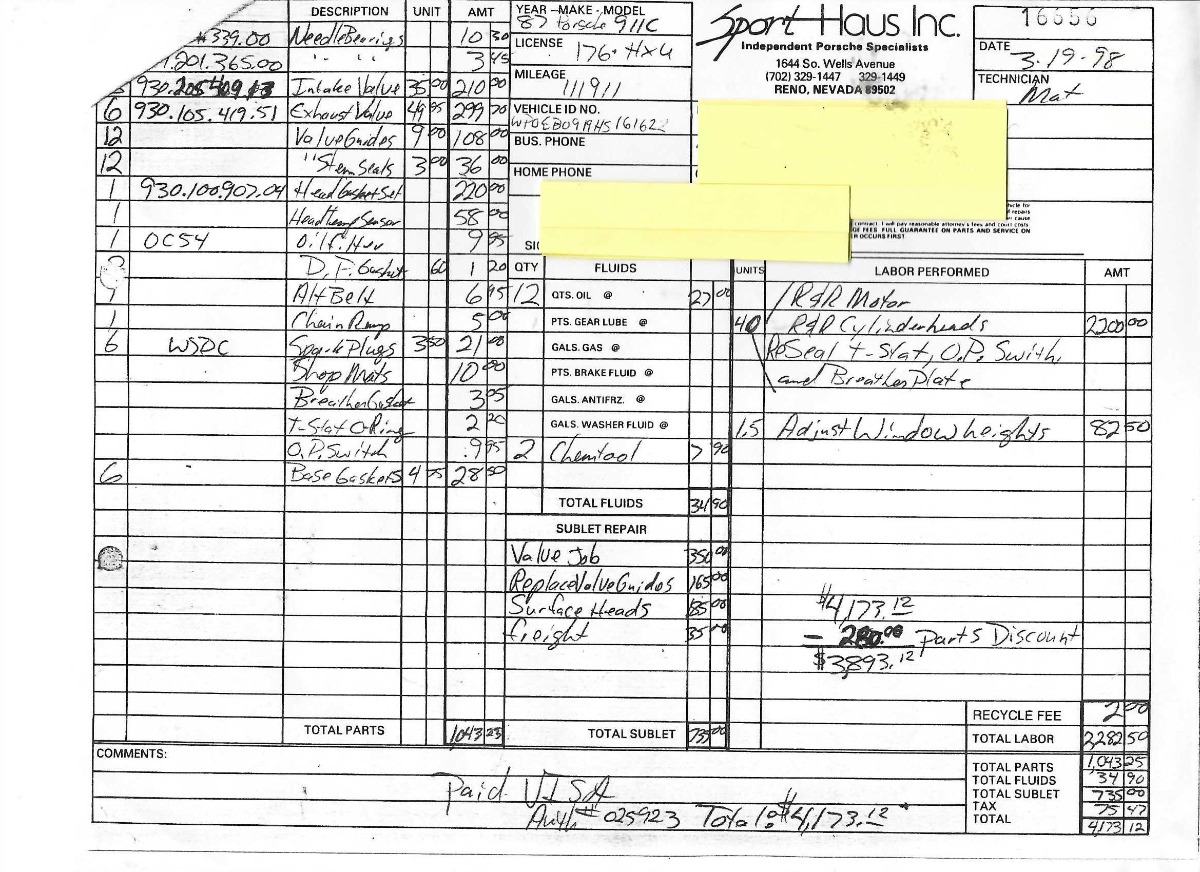 DESCRIPTION UNIT AMT
339.00 Needle Bearings 10 30
1.201.365.00 " " 3 45
930. Intake Valve 35 00 210 00
6 930.105.419.51 Exhaust Valve 49 95 299 70
12 Valve Guides 9 00 108 00
12 " Stem Seals 3 00 36 00
1 930.100.907.04 Head Gasket Set 220 00
1 Head temp Sensor 58 00
1 OC54 Oil filter 9 95
D.F. Gasket 60 1 20
1 Alt Belt 6 95
1 Chain Ramp 5 00
6 W5DC Spark Plugs 3 50 21 00
Shop Mats 10 00
Breather Gasket 3 95
T-Stat O-Ring 2 20
O.P. Switch 9 95
6 Base Gaskets 4 75 28 50
TOTAL PARTS 1043 25
YEAR - MAKE - MODEL
87 Porsche 911C
LICENSE 176-HXU
MILEAGE 111911
VEHICLE ID NO.
WP0EB09
BUS. PHONE
HOME PHONE
Sport Haus Inc.
Independent Porsche Specialists
1644 So. Wells Avenue
(702) 329-1447 329-1449
RENO, NEVADA 89502
16656
DATE 3-19-98
TECHNICIAN
Mat
contract. I will pay reasonable attorney's fees and court costs
GE FEES FULL GUARANTEE ON PARTS AND SERVICE ON
ER OCCURS FIRST
QTY FLUIDS
12 QTS. OIL @ 27 00
PTS. GEAR LUBE @
GALS. GAS @
PTS. BRAKE FLUID @
GALS. ANTIFRZ. @
GALS. WASHER FLUID @
2 Chemtool 7 90
TOTAL FLUIDS 34 90
SUBLET REPAIR
Valve Job 350 00
Replace Valve Guides 165 00
Surface Heads 185 00
freight 35 00
TOTAL SUBLET 735 00
UNITS LABOR PERFORMED AMT
R&R Motor
40 R&R Cylinderheads 2200 00
ReSeal T-Stat, O.P. Swith,
and Breather Plate
1.5 Adjust Window heights 82 50
$4,173.12
- 280.00 Parts Discount
$3893.12
RECYCLE FEE 2 00
TOTAL LABOR 2282 50
TOTAL PARTS 1,043 25
TOTAL FLUIDS 34 90
TOTAL SUBLET 735 00
TAX 75 47
TOTAL 4173 12
COMMENTS:
Paid VISA
Auth# 025923 Total: $4,173.12